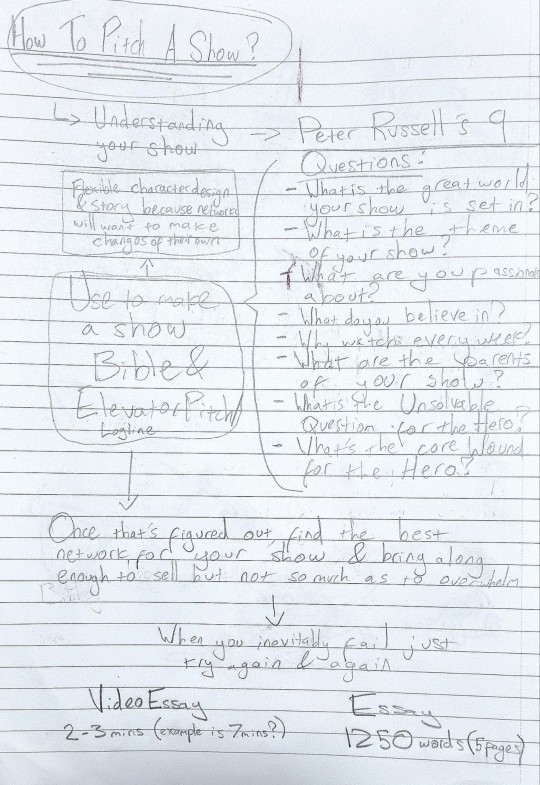 How To Pitch A Show?
↳ Understanding
your show
→ Peter Russell's 9
Questions:
- What is the great world
your show is set in?
- What is the theme
of your show?
- What are you passionate
about?
- What do you believe in?
- Why watch every week?
- What are the parents
of your show?
- What is the Unsolvable
Question for the Hero?
- What's the core Wound
for the Hero?
Flexible character design
& story because network
will want to make
changes of their own
Use to make
a show
Bible &
Elevator Pitch/
Logline
Once that's figured out, find the best
network for your show & bring along
enough to sell but not so much as to overwhelm
When you inevitably fail just
try again & again
Video Essay
2-3 mins (example is 7mins?)
Essay
1250 words (5 pages)